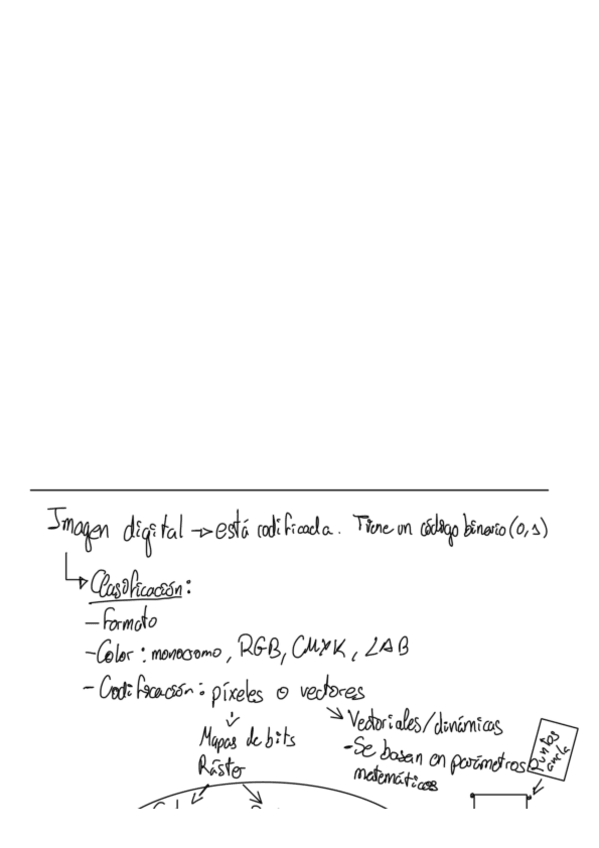 Imagen digital → está codificada. Tiene un código binario (0,1)
↳ Clasificación:
- Formato
- Color: monocromo, RGB, CMYK, LAB
- Codificación: píxeles o vectores
Mapas de bits
Ráster
Vectoriales/dinámicas
- Se basan en parámetros
matemáticos
Puntos
ancla